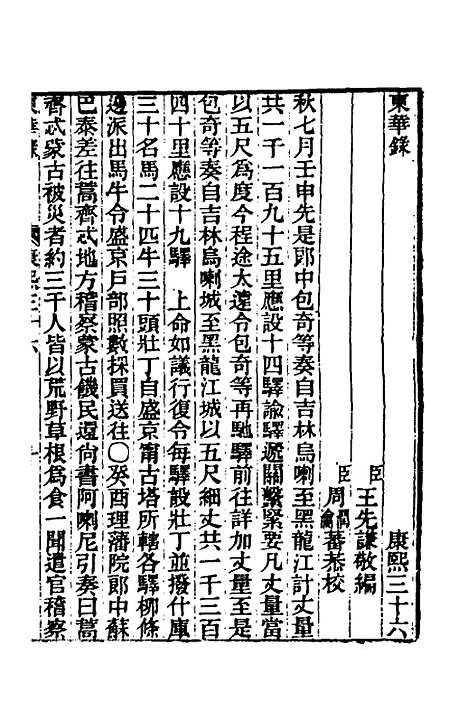 東華錄 康熙三十六
臣王先謙敬編
臣周潤瀹蕃恭校
秋七月壬申先是郎中包奇等奏自吉林烏喇至黑龍江計丈量
共一千一百九十五里應設十四驛諭驛遞關繫緊要凡丈量當
以五尺爲度今程途太遠令包奇等再馳驛前往詳加丈量至是
包奇等奏自吉林烏喇城至黑龍江城以五尺細丈共一千三百
四十里應設十九驛 上命如議行復令每驛設壯丁並撥什庫
三十名馬二十匹牛三十頭壯丁自盛京甯古塔所轄各驛柳條
邊派出馬牛令盛京戶部照數採買送往○癸酉理藩院郎中蘇
巴泰差往蒿齊忒地方稽察蒙古饑民還尚書阿喇尼引奏曰蒿
齊忒蒙古被災者約三千人皆以荒野草根爲食一聞遣官稽察